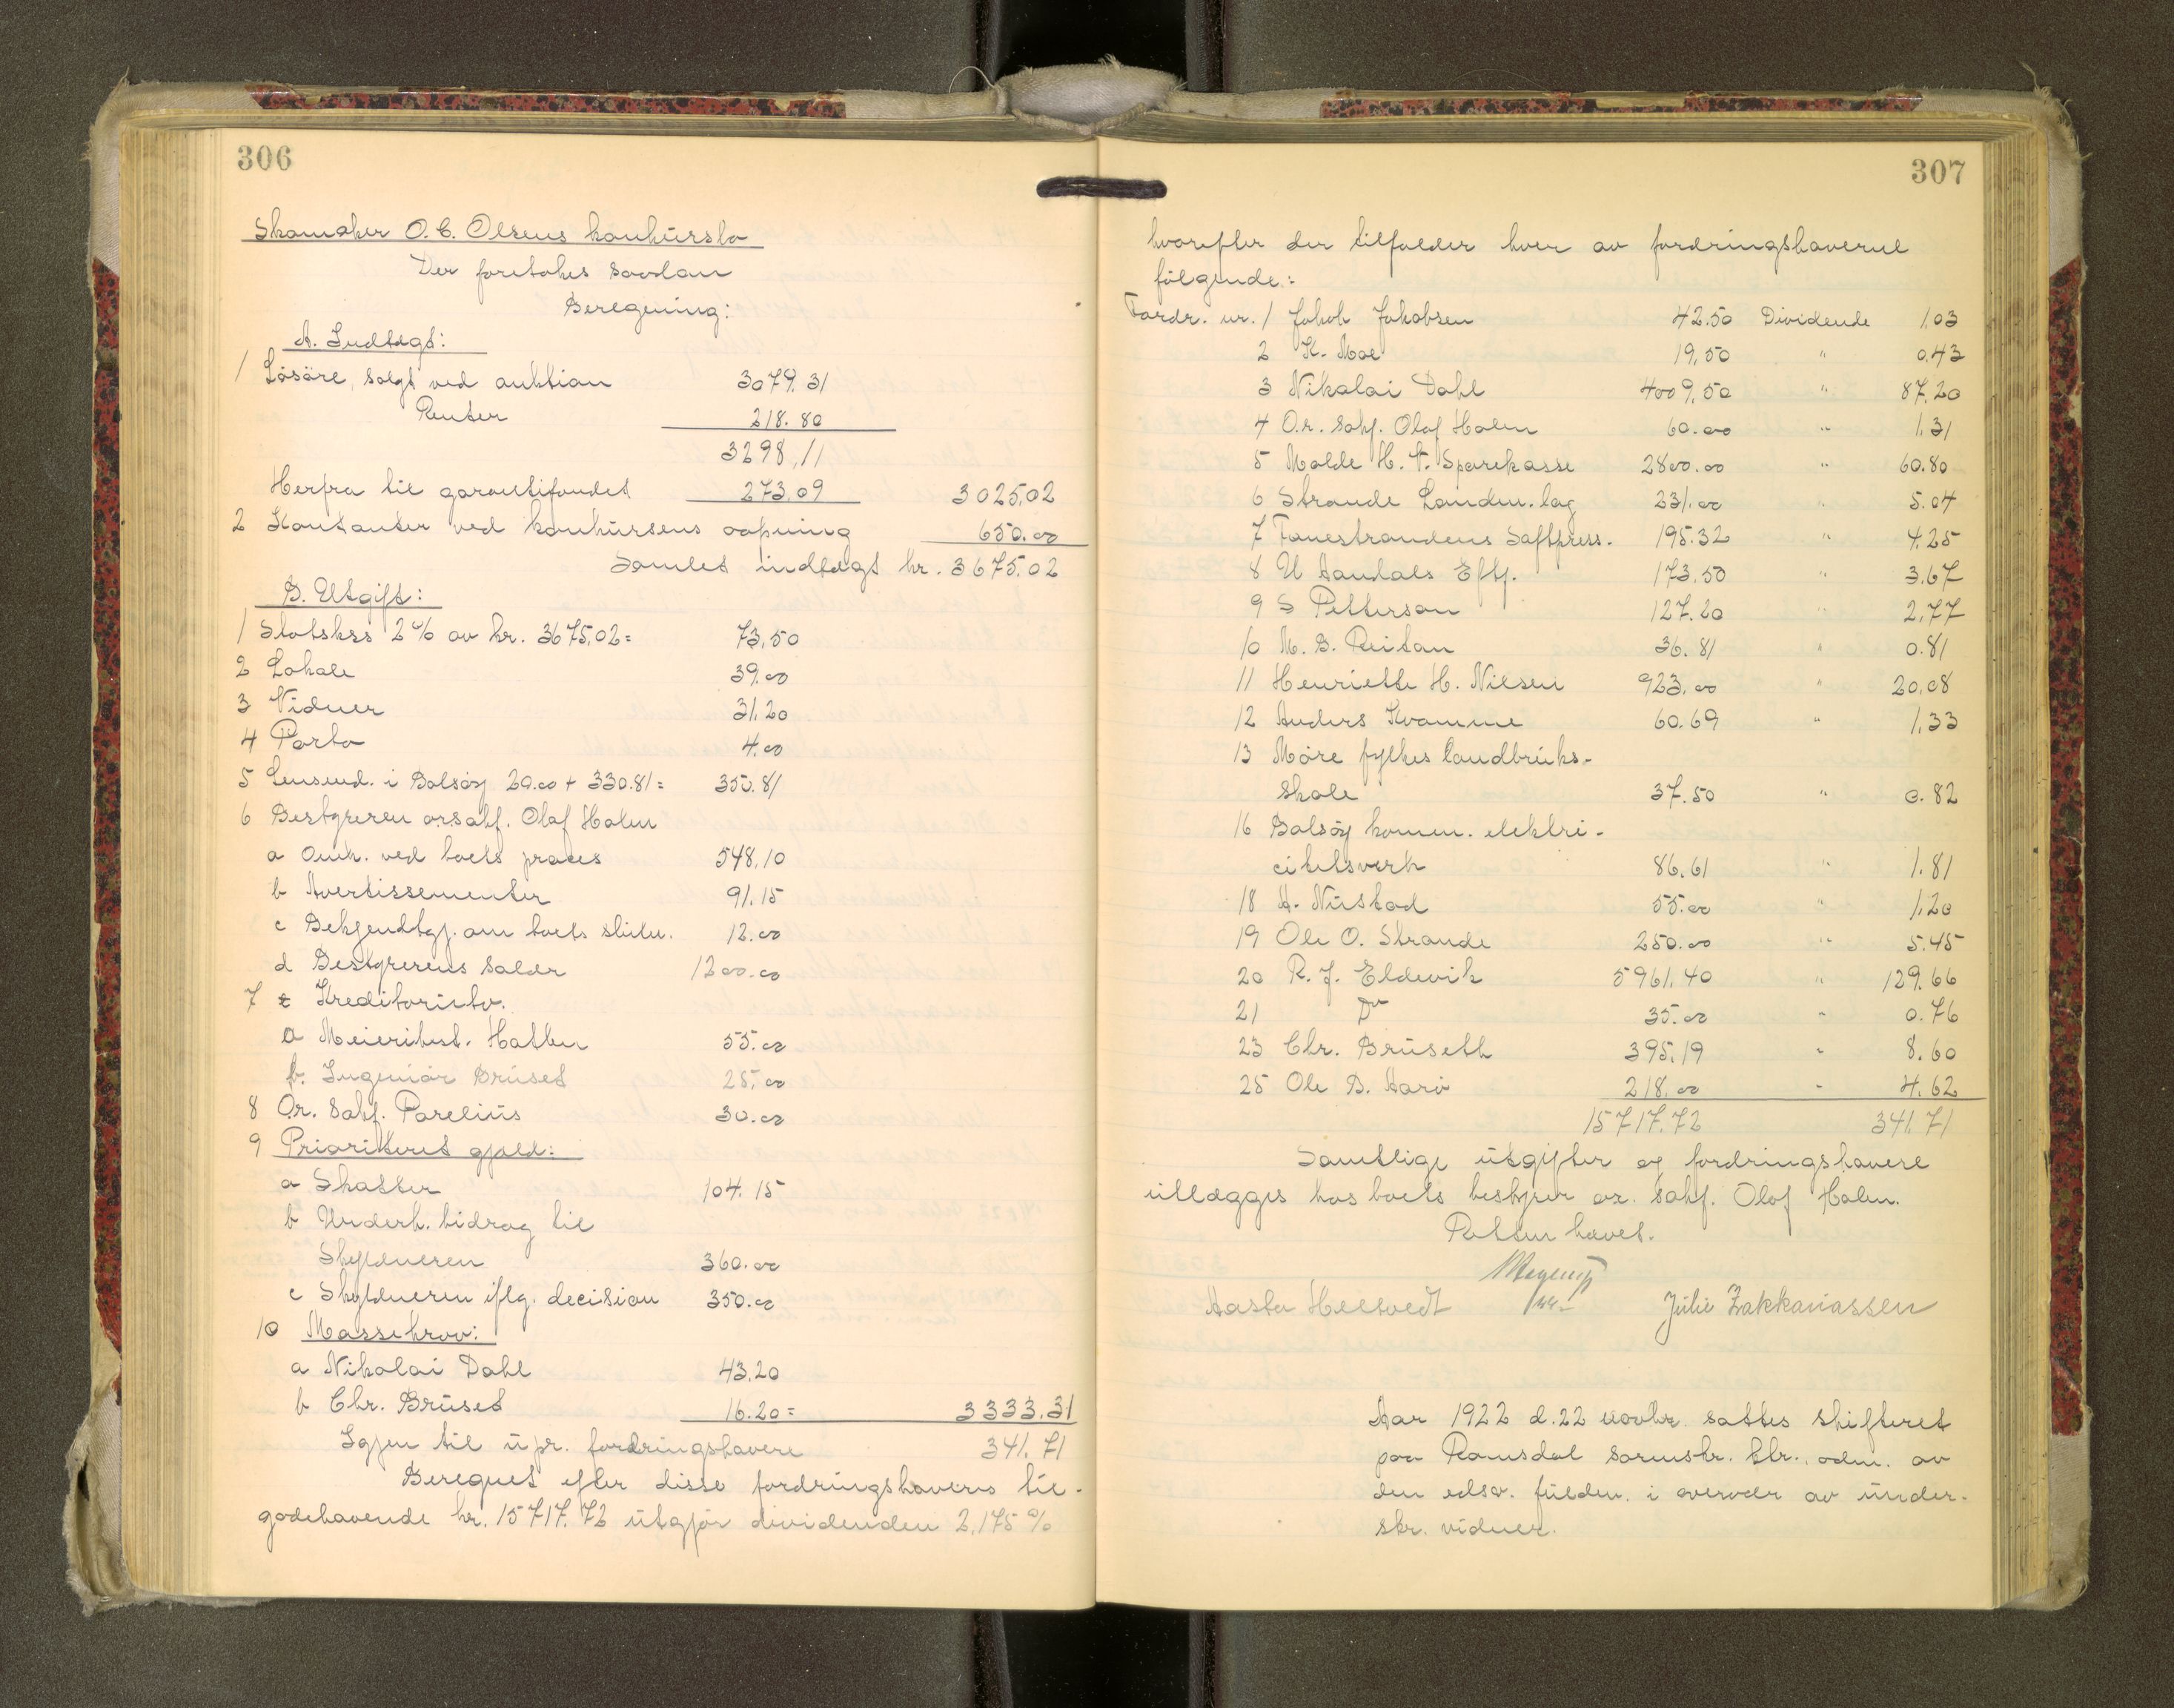 306
Skomaker O. C. Olsens konkursbo
Der foretokes saadan
Beregning:
A. Indtægt:
1 Løsöre, solgt ved auktion 3079.31
Renter 218.80
3298,11
Herfra til garantifondet 273.09 3025,02
2 Kontanter ved konkursens aapning 650.00
Samlet indtægt kr. 3675.02
B. Utgift:
1 Statskss 2% av kr. 3675,02= 73,50
2 Lokale 39.00
3 Vidner 31.20
4 Porto 4.00
5 Lensmd. i Bolsöy 20.00 + 330.81= 350.81
6 Bestyreren orsakf. Olaf Holm
a Omk. ved boets proces 548,10
b Avertissementer 91.15
c Bekjendtgj. om boets slutn. 12.00
d Bestyrerens salær 1200.00
7 Kreditorutv.
a Meieribest. Hatlen 55.00
b. Ingeniör Brüset 25,00
8 Or. Sakf. Parelius 30.00
9 Prioritert gjæld:
a Skatter 104.15
b Underh. bidrag til
Skyldneren 360.00
c Skyldneren iflg. decision 350.00
10 Massekrav:
a Nikolai Dahl 43.20
b Chr. Brüset 16.20= 3333.31
Igjen til upr. fordringshavere 341.71
Beregnet efter disse fordringshaveres til-
godehavende kr. 15717.72 utgjör dividenden 2,175 %
307
hvorefter der tilfalder hver av fordringshaverne
følgende:
Fordr. nr. 1 Jakob Jakobsen 42.50 Dividende 1,03
2 K. Moe 19,50 " 0.43
3 Nikolai Dahl 4009,50 " 87.20
4 O.r. sakf. Olaf Holm 60.00 " 1.31
5 Molde H. t. Sparekasse 2800.00 " 60.80
6 Strande Landm. lag 231.00 " 5.04
7 Fanestrandens Saftpress. 195.32 " 4.25
8 U Aandals Eftf. 173,50 " 3.67
9 S Petterson 127.20 " 2,77
10 M. B. Reitan 36.81 " 0.81
11 Henriette H. Nilsen 923.00 " 20,08
12 Anders Kvamme 60.69 " 1,33
13 Möre fylkes landbruks-
skole 37.50 " 0.82
16 Bolsöy komm. elektri-
citetsverk 86.61 " 1.81
18 A. Nüstad 55.00 " 1,20
19 Ole O. Strande 250.00 " 5.45
20 R. J. Eldevik 5961,40 " 129.66
21 Do 35.00 " 0.76
23 Chr. Brüseth 395.19 " 8.60
25 Ole B. Harö 218.00 " 4.62
15717.72 341.71
Samtlige utgifter og fordringshavere
utlægges hos boets bestyrer or. sakf. Olaf Holm.
Retten hævet.
Aasta Heltvedt Julie Zakkariassen
Aar 1922 d. 22 novbr. sattes skifteret
paa Romsdal sornskr. ktr., adm. av
den edsv. fuldm. i overvær av under-
skr. vidner.